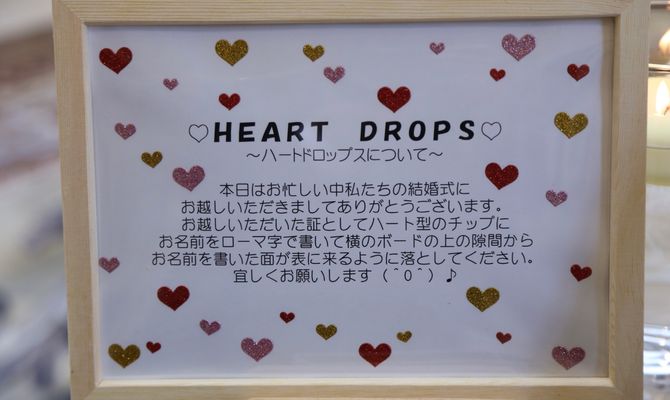 ♡HEART DROPS♡
～ハートドロップスについて～
本日はお忙しい中私たちの結婚式に
お越しいただきましてありがとうございます。
お越しいただいた証としてハート型のチップに
お名前をローマ字で書いて横のボードの上の隙間から
お名前を書いた面が表に来るように落としてください。
宜しくお願いします（＾０＾）♪